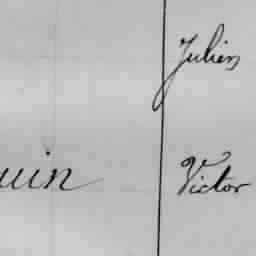 Julien
uin Victor